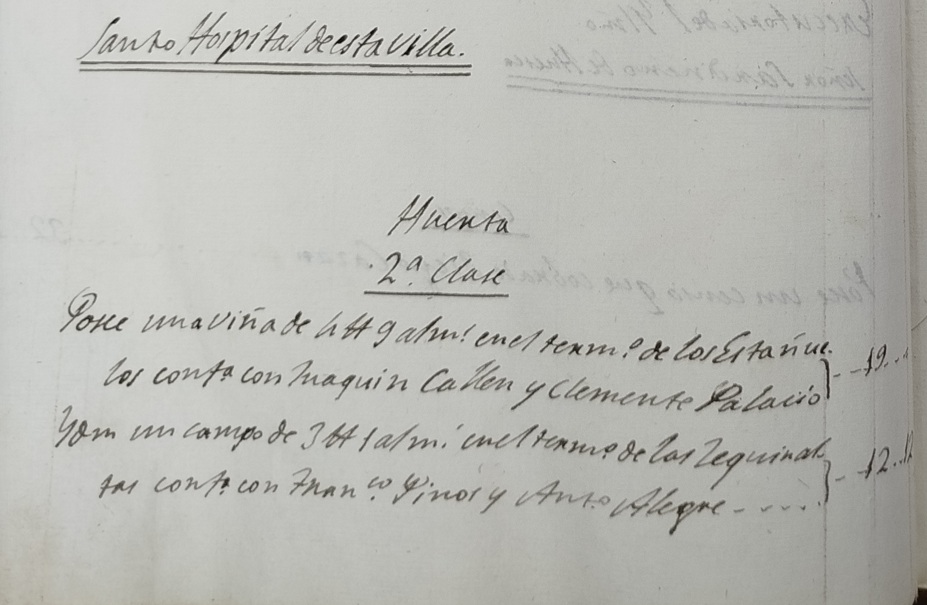 Santo Hospital de esta Villa.
Huerta
2ª. Clase
Posee una viña de 4 H 9 almˢ. en el termº. de los Estañue.
los contª con Juaquin Callen y Clemente Palacio -- 19..
Ydm un campo de 3 H 1 almˢ. en el termº. de las Zequinal
tas contª. con Francº. Pinos y Antº Alegre ----- -- 12..